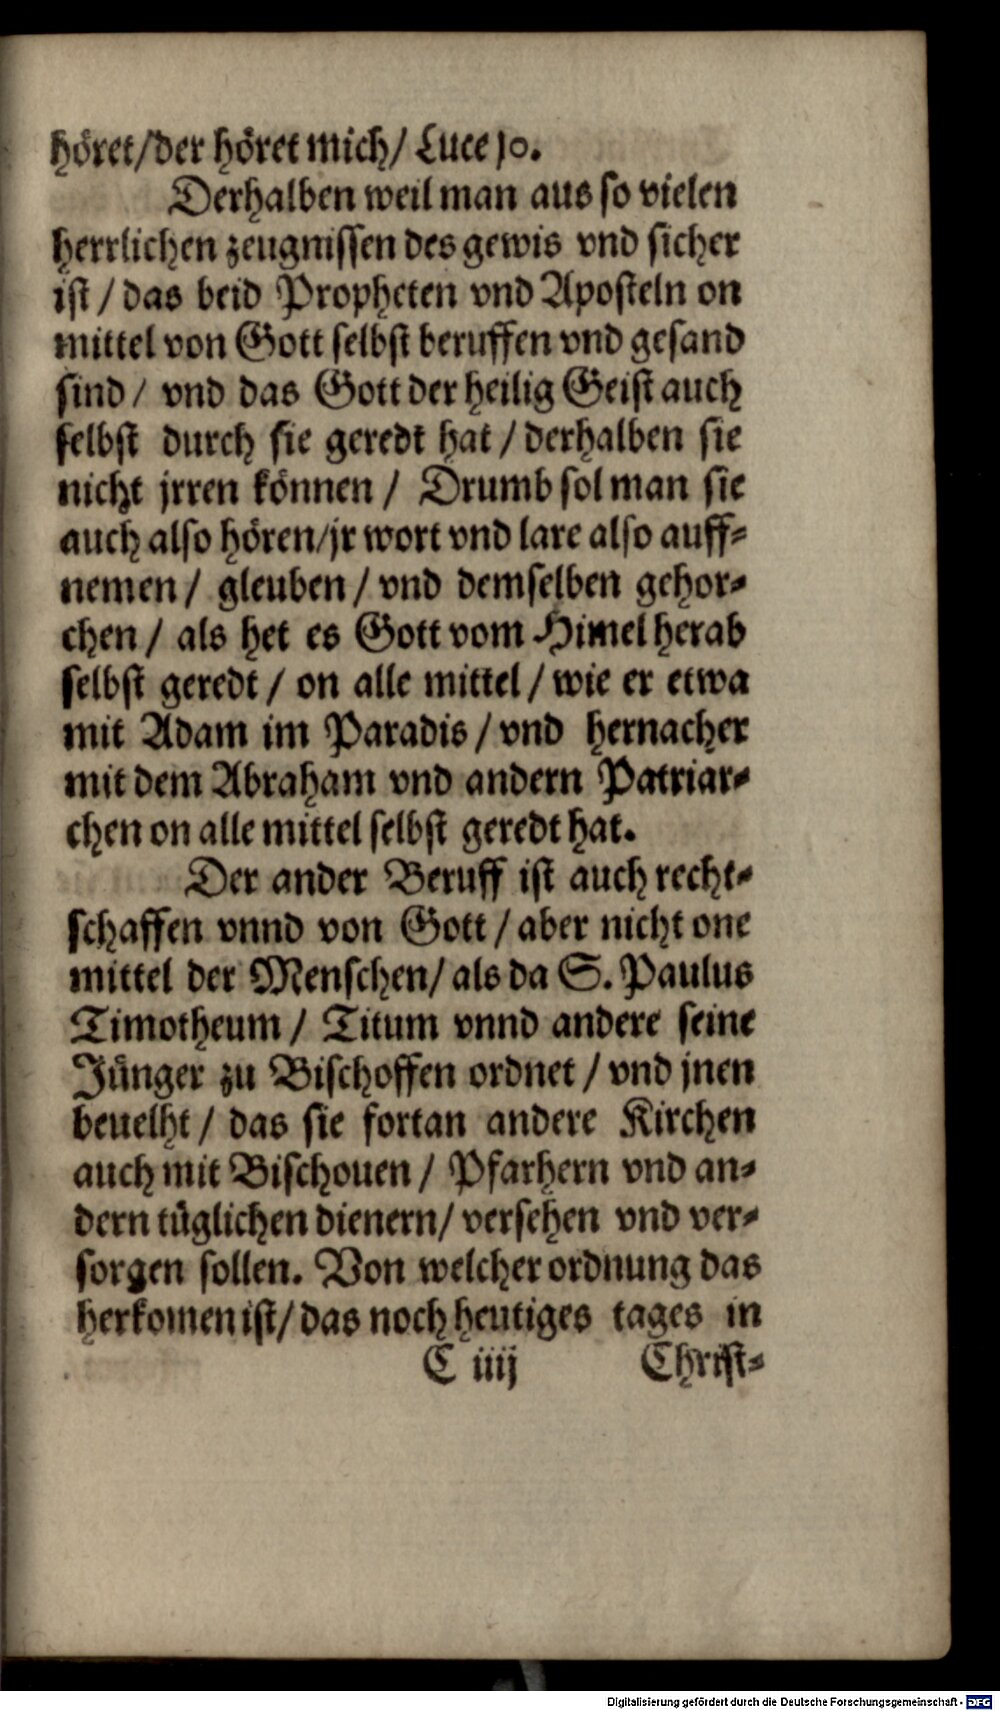 höret/der höret mich/ Luce 10.
Derhalben weil man aus so vielen
herrlichen zeugnissen des gewis vnd sicher
ist / das beid Propheten vnd Aposteln on
mittel von Gott selbst beruffen vnd gesand
sind / vnd das Gott der heilig Geist auch
selbst durch sie geredt hat / derhalben sie
nicht jrren können / Drumb sol man sie
auch also hören/jr wort vnd lare also auff-
nemen / gleuben / vnd demselben gehor-
chen / als het es Gott vom Himel herab
selbst geredt / on alle mittel / wie er etwa
mit Adam im Paradis / vnd hernacher
mit dem Abraham vnd andern Patriar-
chen on alle mittel selbst geredt hat.
Der ander Beruff ist auch recht-
schaffen vnnd von Gott / aber nicht one
mittel der Menschen/ als da S. Paulus
Timotheum / Titum vnnd andere seine
Jünger zu Bischoffen ordnet / vnd jnen
beuelht / das sie fortan andere Kirchen
auch mit Bischouen / Pfarhern vnd an-
dern tüglichen dienern/ versehen vnd ver-
sorgen sollen. Von welcher ordnung das
herkomen ist/ das noch heutiges tages in
C iiij Christ-
Digitalisierung gefördert durch die Deutsche Forschungsgemeinschaft - DFG